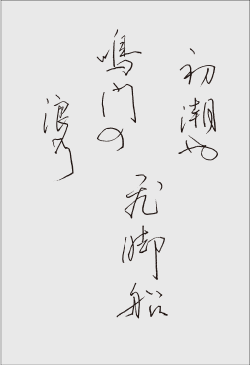 初潮や
鳴門の
浪の
飛脚船